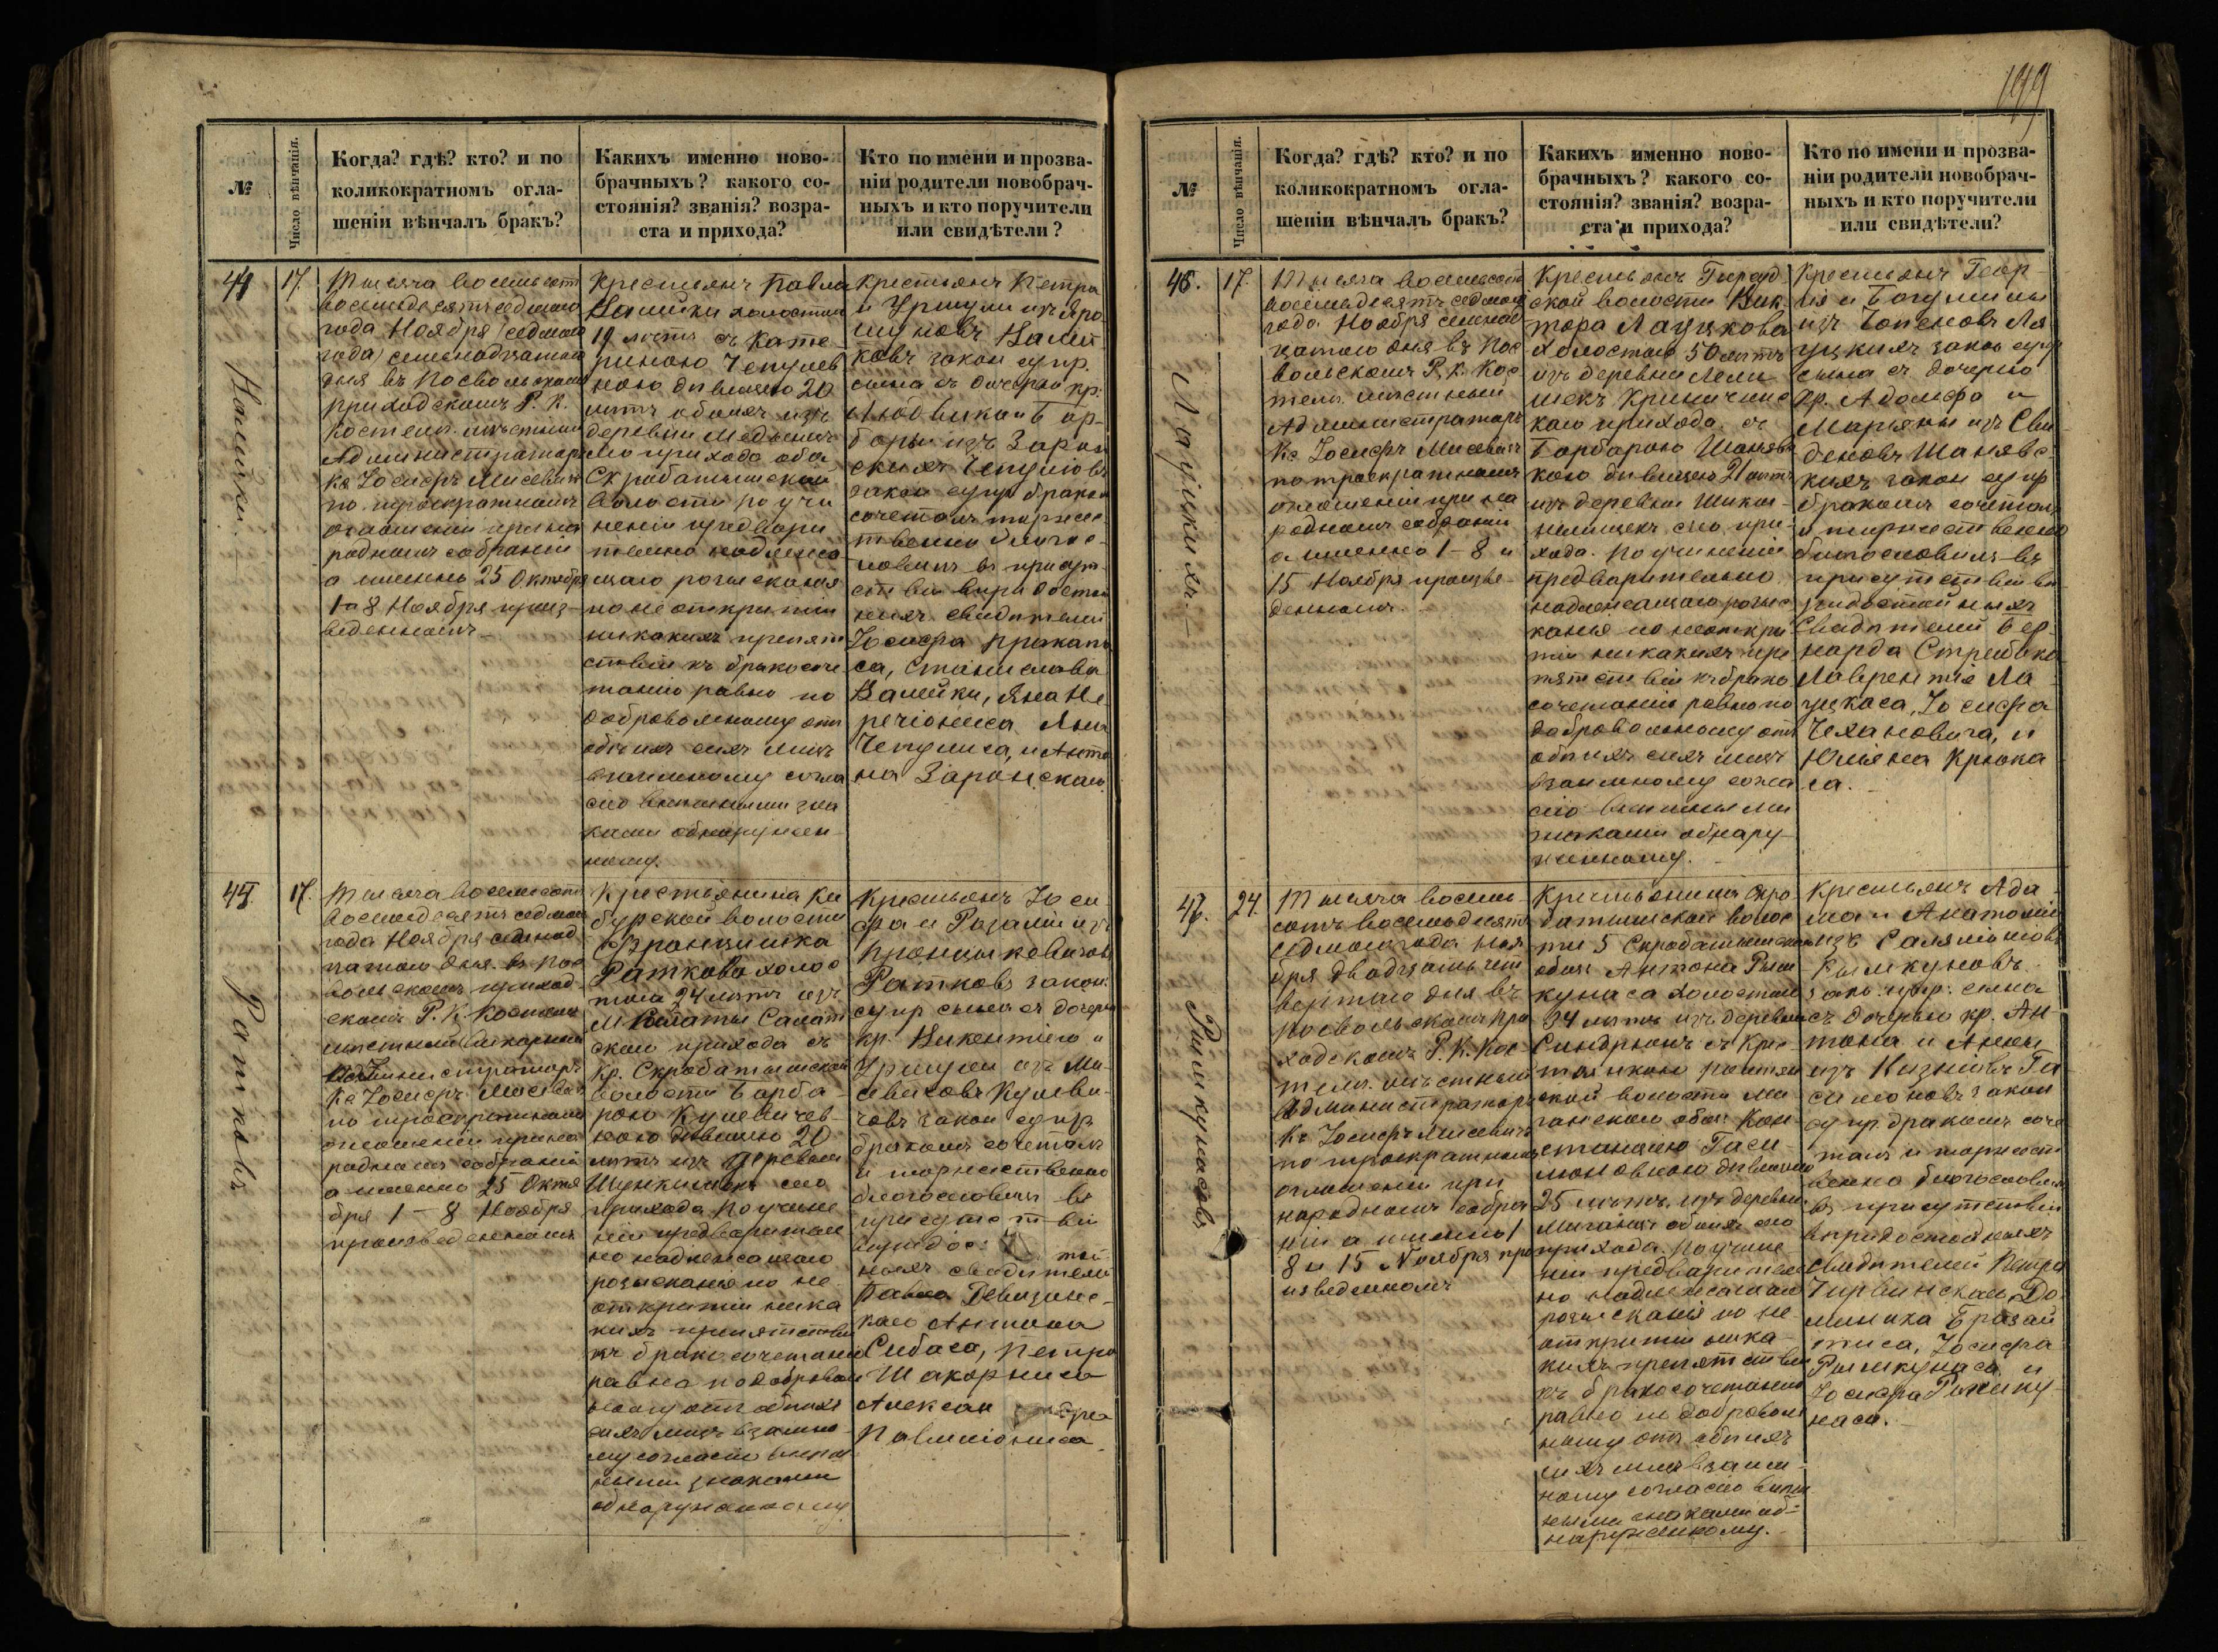 199
№
Число вѣнчанія.
Когда? гдѣ? кто? и по
коликократномъ огла-
шеніи вѣнчалъ бракъ?
Какихъ именно ново-
брачныхъ? какого со-
стоянія? званія? возра-
ста и прихода?
Кто по имени и прозва-
ніи родители новобрач-
ныхъ и кто поручители
или свидѣтели?
17.
Тысяча восемьсотъ
восемьдесятъ седьмаго
года Ноября
года семьнадцатаго
дня въ Посвольскомъ
приходскомъ Р. К.
Костелѣ мѣстный
Администраторъ
Кс Іосифъ Мисевичъ
по троекратномъ
оглашеніи при на
родномъ собраніи
а именно 25 Октября
1 и 8 Ноября произ-
веденномъ
Крестьянъ Павла
холостаго
19 лѣтъ съ Кате-
риною Чепулев
ною дѣвицею 20
лѣтъ обоихъ изъ
деревни
прихода оба
Скробатышской
волости по учи
неніи предвари
тельно надлежа
щаго розысканія
по не открытіи
никакихъ препят
ствій къ бракосоче
танію равно по
добровольному отъ
обоихъ сихъ лицъ
взаимному согла
сію внѣшними зна
ками обнаружен-
ному.
Крестьянъ Петра
и Уршули изъ Яро
шуновъ
ковъ закон супр.
сына съ дочерью кр.
Людвика и Бар-
бары изъ Зарон
скихъ Чепулисовъ
закон супр бракомъ
сочеталъ торжес-
твенно благос-
ловилъ въ присут
ствіи вѣридостой
ныхъ свидѣтелей
Іосифа
са, Станислава
Валейки, Яна Не
реčіониса Яна
Чепулиса, и Анто
на Заронскаго.
45.
17.
Ратковъ
Тысяча восемьсотъ
восемьдесятъ седьмаго
года Ноября семнад
цатаго дня въ Пос
вольскомъ приход-
скомъ Р. К. Костелѣ
мѣстный
Администраторъ
Кс Іосифъ Мисевичъ
по троекратномъ
оглашеніи при на
родномъ собраніи
а именно 25 Октя
бря 1 - 8 Ноября
произведенномъ
Крестьянина Ки
бурской волости
Францишка
Раткова холос
таго 24 лѣтъ изъ
М Салаты Салат
скаго прихода съ
Кр. Скробатышской
волости Барба-
рою Кулевичев-
ною дѣвицею 20
лѣтъ изъ деревни
сего
прихода по учине
ніи предварительно
надлежащаго
розысканія по не
открытіи ника
кихъ препятствій
къ бракосочетанію
равно по добровол
ному отъ обоихъ
сихъ лицъ взаимно
му согласію внѣш
ными знаками
обнаруженному
Крестьянъ Іоси
фа и Розаліи изъ
Пранцкевичовъ
Ратковъ закон.
супр сына съ дочерью
кр. Викентіего и
Уршули изъ Ми
севичовъ Кулеви-
човъ закон супр
бракомъ сочеталъ
и торжественно
благословилъ въ
присутствіи
вѣридос той
ныхъ свидѣтелей
Павла
каго Антона
Сибаса, Петра
Шакорниса
Александра
Павилониса.
46.
17.
Лауцкихъ.
Тысяча восемьсотъ
восемьдесятъ седьмаго
года Ноября семнад
цатаго дня въ Пос
вольскомъ Р. К. Кос
телѣ мѣстный
Администраторъ
Кс Іосифъ Мисевичъ
по троекратномъ
оглашеніи при на
родномъ собраніи
а именно 1 - 8 и
15 Ноября произве-
денномъ.
Крестьянъ
ской волости Вик
тора Лауцкова
холостаго 50 лѣтъ
изъ деревни
Криничинс
каго прихода съ
Барбарою Шанявс
кою дѣвицею 21 лѣтъ
изъ деревни
сего при-
хода. по учиненіи
предварительно
надлежащаго розыс
канія по неоткры
тіи никакихъ пре
пятствій къ брако
сочетанію равно по
добровольному отъ
обоихъ сихъ лицъ
взаимному согла
сію внѣшными
знаками обнару-
женному.
Крестьянъ Геор-
гія и Богумилы
изъ Чопеновъ Ла
уцкихъ закон супр
сына съ дочерью
кр. Адольфа и
Марьяны изъ Сви
деновъ Шанявс-
кихъ закон супр
бракомъ сочеталъ
и торжественно
благословилъ въ
присутствіи вѣ
ридостойныхъ
Свидѣтелей Бер-
нарда
Лаврентія Ла
уцкаса, Іосифа
Чехановича, и
Юліяна Крюка
са.
47.
24.
Рымкунасовъ
Тысяча восемь-
сотъ восемьдесятъ
седьмаго года Ноя
бря двадцать чет
вертаго дня въ
Посвольскомъ при
ходскомъ Р. К. Кос-
телѣ мѣстный
Администраторъ
Кс Іосифъ Мисевичъ
по троекратномъ
оглашеніи при
народномъ собра
ніи а именно 1
8 и 15 Ноября про
изведенномъ
Крестьянина Скро
батышской волос
ти 5 Скробатышскаго
общ: Антона Рым
кунаса холостаго
34 лѣтъ изъ деревни
съ Крес
тьянкою
ской волости
общ. Кон-
станціею Гаси
моновною дѣвицею
25 лѣтъ. изъ деревни
обоихъ сего
прихода. по учине
ніи предваритель
но надлежащаго
розысканія по не
открытіи ника-
кихъ препятствій
къ бракосочетанію
равно по доброволь
ному отъ обоихъ
сихъ лицъ взаим-
ному согласію внѣш
ными знаками об-
наруженному.
Крестьянъ Ада-
ма и Анатоліи
изъ
Рымкуновъ
зако. супр. сына
съ дочерью кр. Ан
тона и Анны
изъ Га
симоновъ закон
супр. бракомъ соче
талъ и торжест
венно благословилъ
въ присутствіи
вѣридостойныхъ
Свидѣтелей Петра
До
миника Бразай
тиса, Іосифа
Рымкунаса и
Іосифа Рымку
наса.